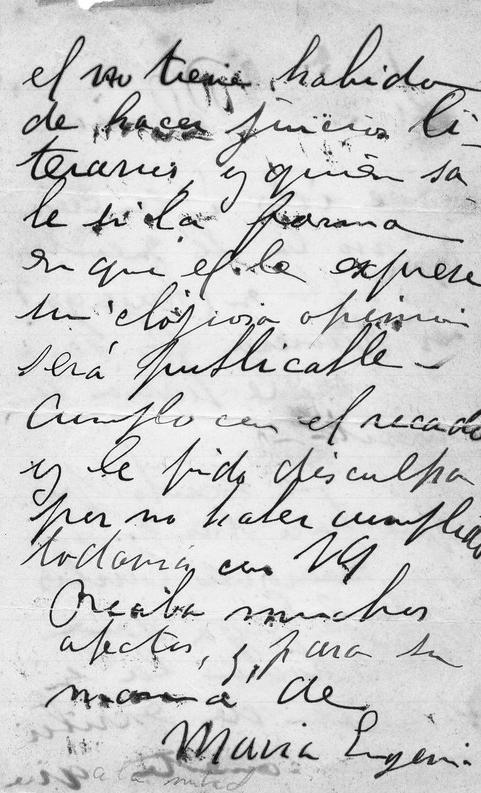 el no tiene habido
de hacer juicios li-
terarios, y quién sa
le si la forma
en que el le exprese
su elogiosa opinion
será publicable -
Cumplo con el recado
y le pido disculpa
por no haber cumplido
todavía con Vd
Reciba muchos
afectos, y para su
mamá de
Maria Eugenia